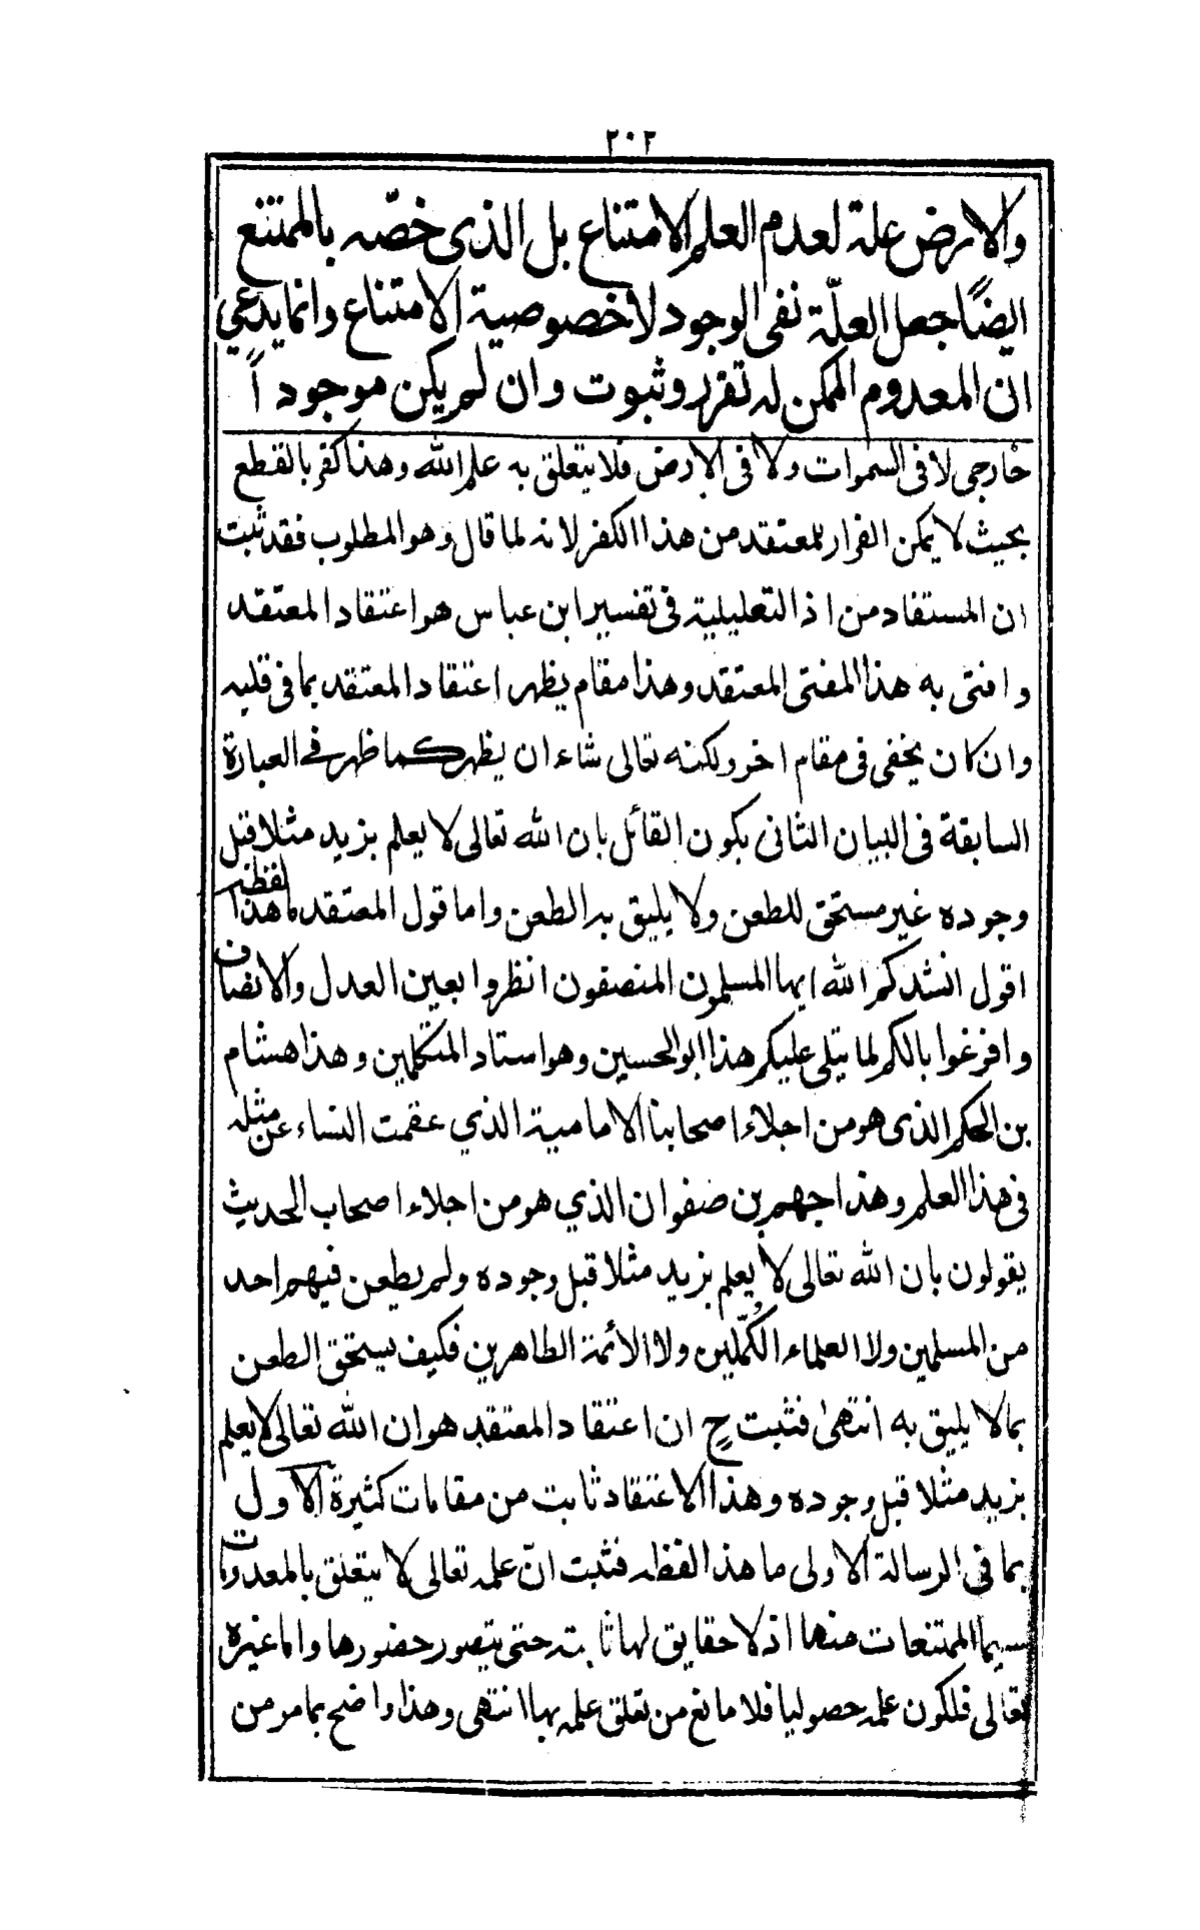 ٢٠٢
والارض علة لعدم العلم الامتناع بل الذى خصّه بالممتنع
ايضًا جعل العلّة نفى الوجود لا خصوصية الامتناع وانما يدعى
ان المعدوم الممكن له تقرر وثبوت وان لم يكن موجود اً
خارجى لا فى السموات ولا فى الارض فلا يتعلق به علم الله وهذا كفر بالقطع
بحيث لا يمكن الفرار للمعتقد من هذا الكفر لانه لما قال وهو المطلوب فقد ثبت
ان المستفاد من اذ التعليلية فى تفسير ابن عباس هو اعتقاد المعتقد
وافتى به هذا المفتى المعتقد وهذا مقام يظهر اعتقاد المعتقد بما فى قلبه
وان كان يخفى فى مقام اخر ولكنه تعالى شاء ان يظهر كما ظهر فے العبارة
السابقة فى البيان الثانى بكون القائل بان الله تعالى لا يعلم بزيد مثلا قبل
وجوده غير مستحق للطعن ولا يليق به الطعن واما قول المعتقد ما هذا لفظه
اقول انشدكم الله ايها المسلمون المنصفون انظروا بعين العدل والانصاف
وافرغوا بالكم لما يتلى عليكم هذا ابو الحسين وهو استاد المتكلمين وهذا هشام
بن الحكم الذى هو من اجلاء اصحابنا الامامية الذي عقمت النساء عن مثله
فى هذا العلم وهذا جهم بن صفوان الذي هو من اجلاء اصحاب الحديث
يقولون بان الله تعالى لا يعلم بزيد مثلا قبل وجوده ولم يطعن فيهم احد
من المسلمين ولا العلماء الكُمّلين ولا الائمة الطاهرين فكيف يستحق الطعن
بما لا يليق به انتهىٰ فثبت حٍ ان اعتقاد المعتقد هو ان الله تعالى لا يعلم
بزيد مثلا قبل وجوده وهذا الاعتقاد ثابت من مقامات كثيرة الاول
بما فى الرسالة الاولى ما هذا لفظه فثبت انّ علمه تعالى لا يتعلق بالمعدومات
سيما الممتنعات منها اذ لا حقايق لها ثابته حتى يتصور حضورها واما غيره
تعالى فلكون علمه حصوليا فلا مانع من تعلق علمه بها انتهى وهذا واضح بما مر من